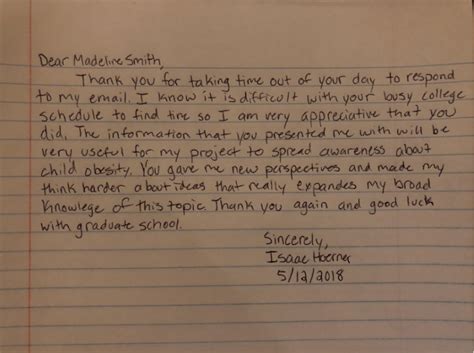 Dear Madeline Smith,
Thank you for taking time out of your day to respond
to my email. I know it is difficult with your busy college
schedule to find time so I am very appreciative that you
did. The information that you presented me with will be
very useful for my project to spread awareness about
child obesity. You gave me new perspectives and made my
think harder about ideas that really expandes my broad
knowlege of this topic. Thank you again and good luck
with graduate school.
Sincerely,
Isaac Hoerner
5/12/2018